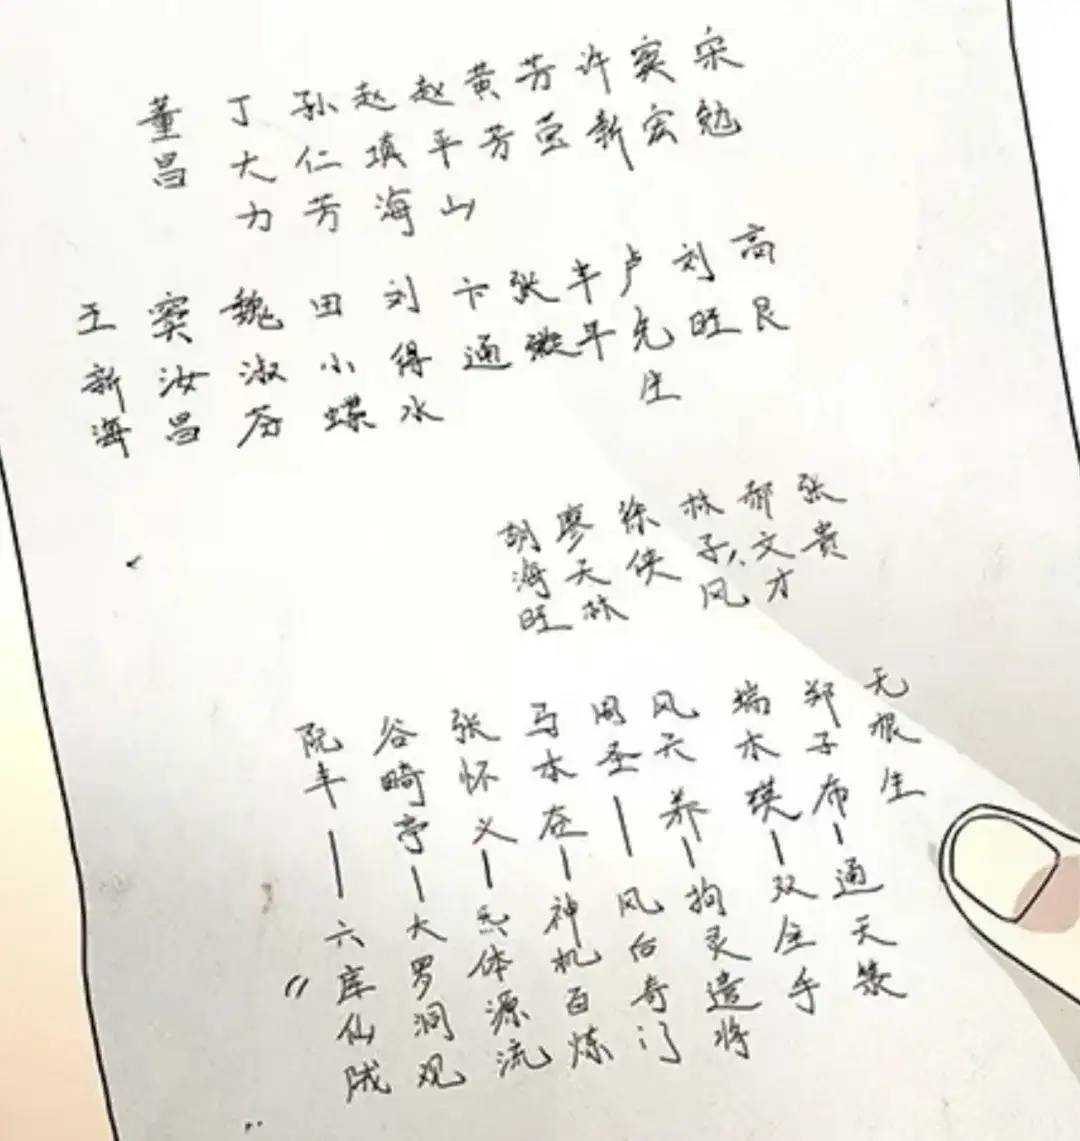 宋勉
窦宏
许新
芳
黄芳
赵平山
赵填海
孙仁芳
丁大力
董昌
高艮
刘旺
卢先生
丰平
张微
卞通
刘得水
田小蝶
魏淑芬
窦汝昌
王新海
张贵
郝文才
林子风
徐侠
廖天林
胡海旺
无根生
郑子布—通天箓
端木瑛—双全手
风天养—拘灵遣将
周圣—风后奇门
马本在—神机百炼
张怀义—炁体源流
谷畸亭—大罗洞观
阮丰—六库仙贼